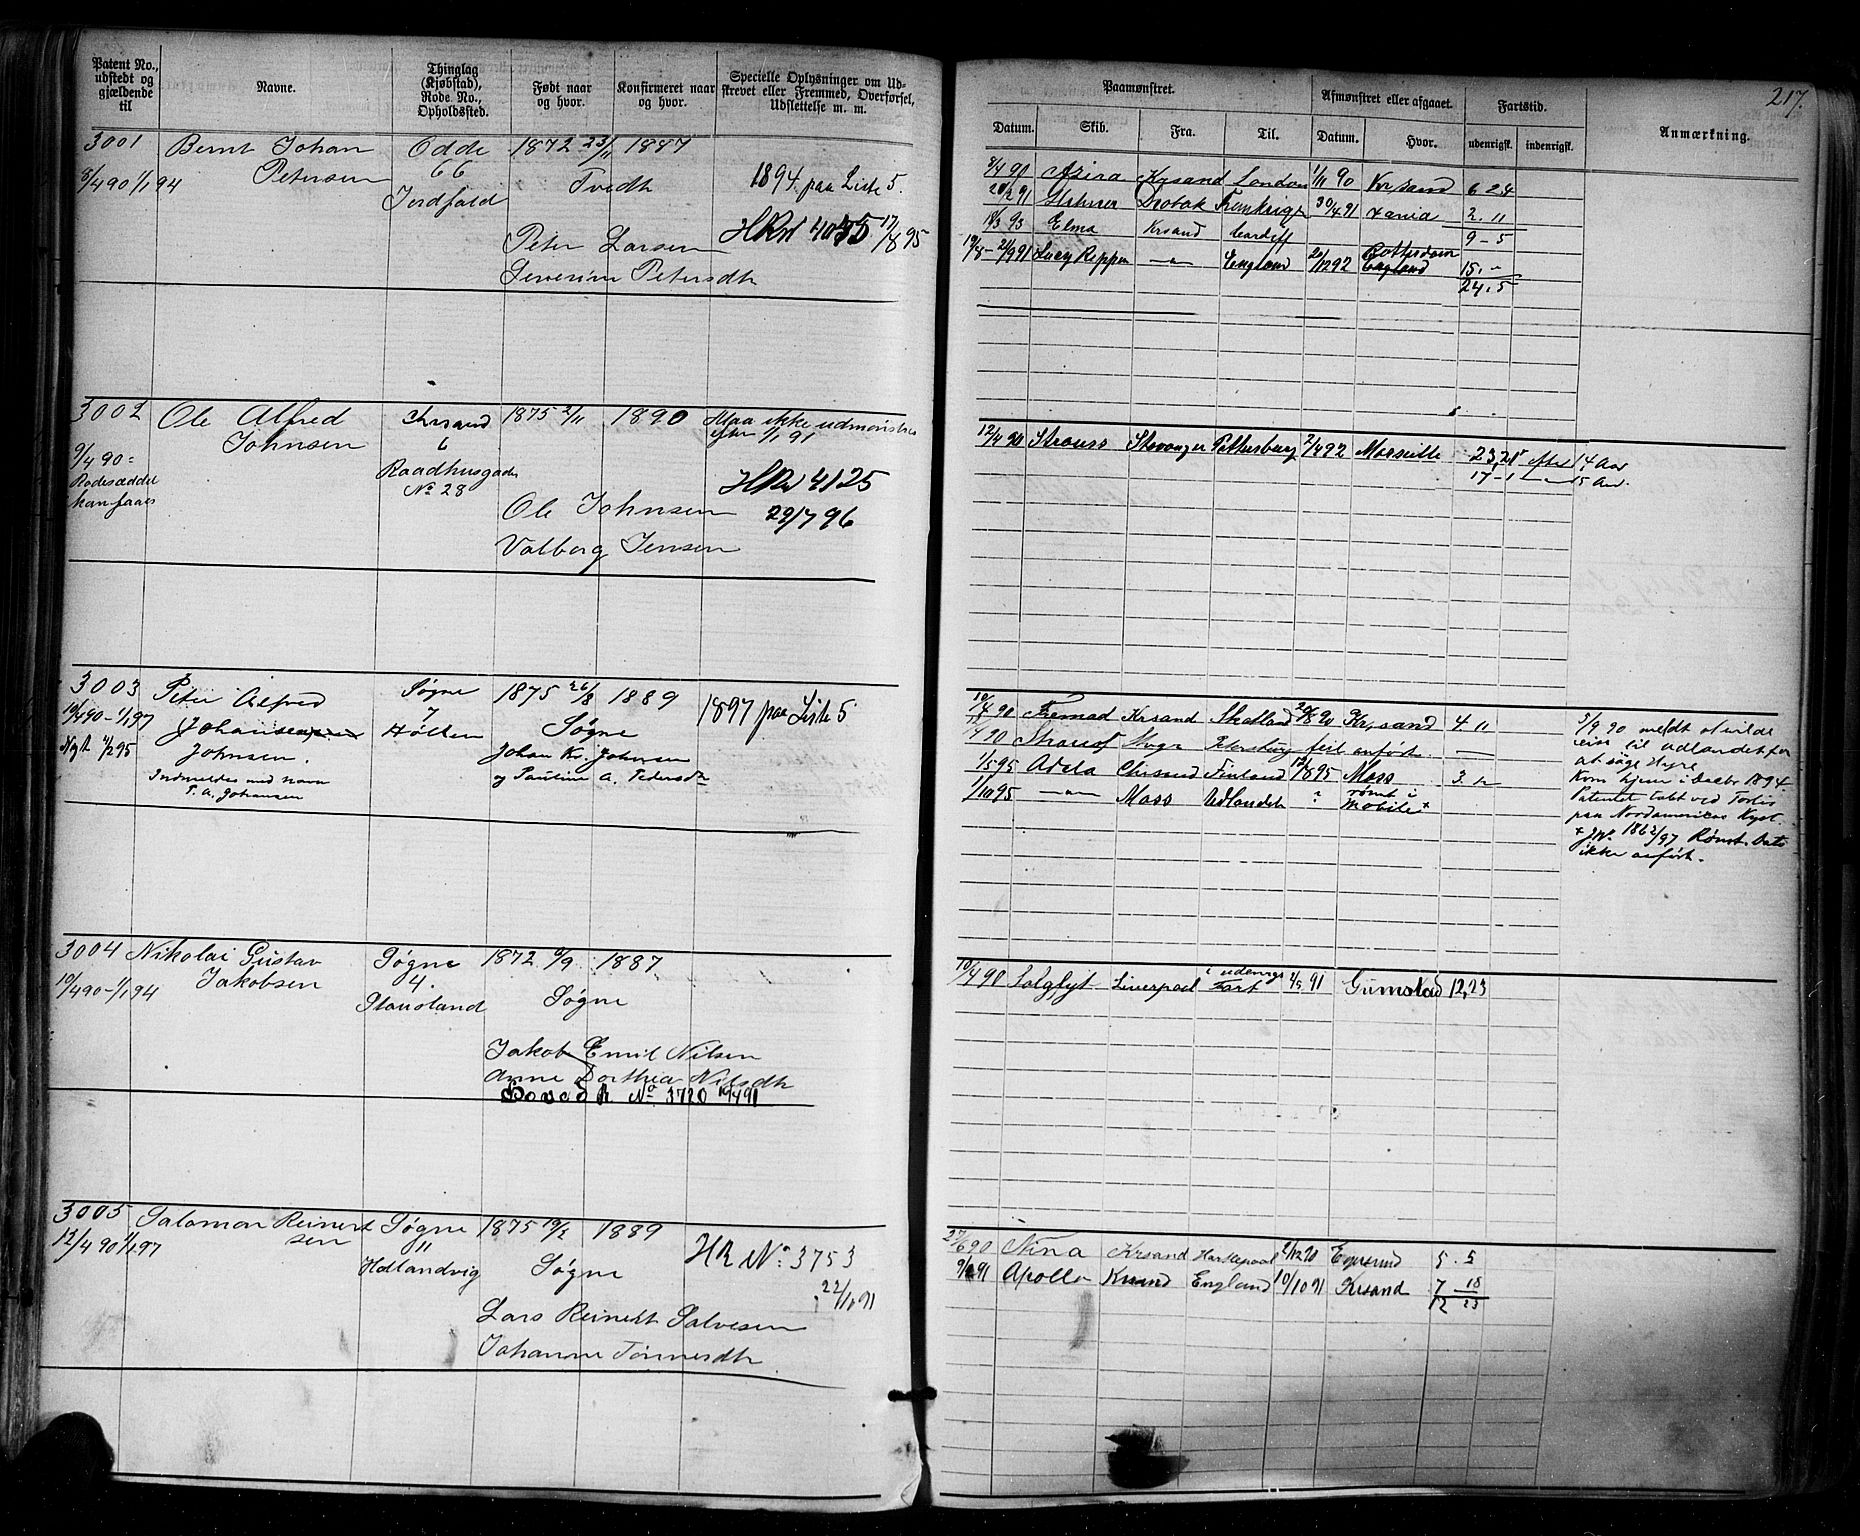 Patent No., udstedt og gjældende til
Navne.
Thinglag (Kjøbstad), Rode No., Opholdssted.
Født naar og hvor.
Konfirmeret naar og hvor.
Specielle Oplysninger om Udskrevet eller Fremmed, Overførsel, Udslettelse m. m.
3001 Bernt Johan Odde 1872 23/11 1887
8/4 90 1/1 94 Petersen 66 Tvedt 1894 paa Liste 5.
Peter Larsen HRul 4035 17/8 95
Severine Petersdtr
3002 Ole Alfred Chrsand 1875 2/11 1890 Maa ikke udmønstres
Johnsen 6 efter 1/1 91
9/4 90 = Raadhusgade HRul 4125
Rodeseddel No 28
kan faaes Ole Johnsen 29/7 96
Valborg Jensen
3003 Peter Alfred Søgne 1875 26/8 1889 1897 paa Liste 5
10/4 90 - 1/1 97 7 Søgne
Nyt 4/2 95 Johnsen. Høllen Johan Kr. Johnsen
Indmeldes med navn og Pauline A. Pedersdtr
P. A. Johansen
3004 Nikolai Gustav Søgne 1872 9/9 1887
10/4 90 - 1/1 94 Jakobsen 4. Søgne
Stausland
Jakob Emil Nilsen
Anne Dorthea Nilsdtr
Hoved R No 3720 19/4 91
3005 Salomon Reinert Søgne 1875 19/2 1889
12/4 90 1/1 97 sen 11 HR No. 3753
Høllandvig Søgne 22/10 91
Lars Reinert Salvesen
Johanne Tønnesdtr
217.
Paamønstret.
Afmønstret eller afgaaet.
Fartstid.
Anmærkning.
Datum. Skib. Fra. Til. Datum. Hvor. udenrigsk. indenrigsk.
8/4 90 Asira Krsand London 1/11 90 Krsand 6 24
Drøbak Frankrige 30/4 91 Xania 2. 11
18/3 93 Elma Krsand Cardiff 9 - 5
21/9 91 Lucy Reppen — England 2/12 92 Rotterdam
England 15. -
24. 5
12/4 90 Strauss Stavanger Pettersburg 2/4 92 Marseille 23, 21 efter 14 Aar
17 - 1 — 15 Aar.
10/4 90 Fremad Krsand Skotland 20/8 90 Kr,sand 4 11
Strauss Petersburg feil anført. —
1/5 95 Adela Chrsand Finland 12/8 95 Moss 3.
1/10 95 — Moss Udlandet ? rømt i
Mobile +
5/9 90 meldt at vilde
reise til Udlandet for
at søge Hyre
Kom hjem i Decbr 1894
Patentet tabt ved Forlis
paa Nordamericas Kyst.
+ J.No. 1862/97 Rømt. Dato
ikke anført.
10/4 90 Solglyt Liverpool i udenrigs 91 Grimstad 12, 23
Fart
27/6 90 Nina Krsand Hartlepool 2/12 90 Egersund 5. 5
91 Apollo Krsand England 10/10 91 Krsand 7 18
12 23